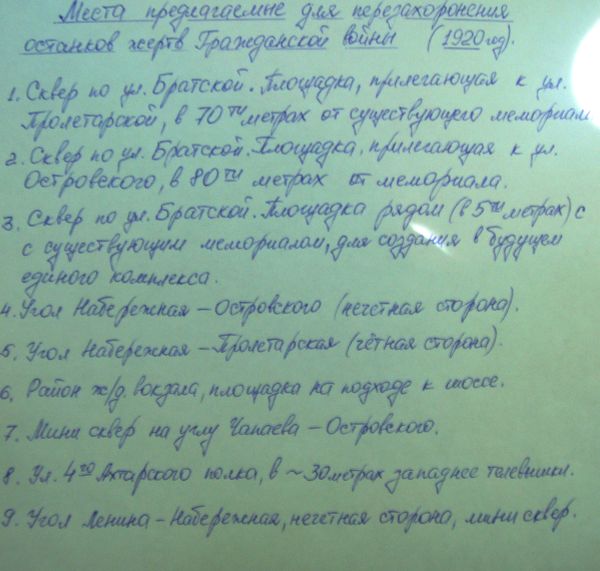 Места предлагаемые для перезахоронения
останков жертв Гражданской войны (1920 год).
1. Сквер по ул. Братской. Площадка, прилегающая к ул.
Пролетарской, в 70ти метрах от существующего мемориал
2. Сквер по ул. Братской. Площадка, прилегающая к ул.
Островского, в 80ти метрах от мемориала.
3. Сквер по ул. Братской. Площадка рядом (в 5ти метрах) с
с существующим мемориалом, для создания в будущем
единого комплекса.
4. Угол Набережная – Островского (нечетная сторона).
5. Угол Набережная – Пролетарская (чётная сторона).
6. Район ж/д. вокзала, площадка на подходе к шоссе.
7. Мини сквер на углу Чапаева – Островского.
8. Ул. 4го Ахтарского полка, в ~ 30 метрах западнее телевышки.
9. Угол Ленина – Набережная, нечетная сторона, мини сквер.